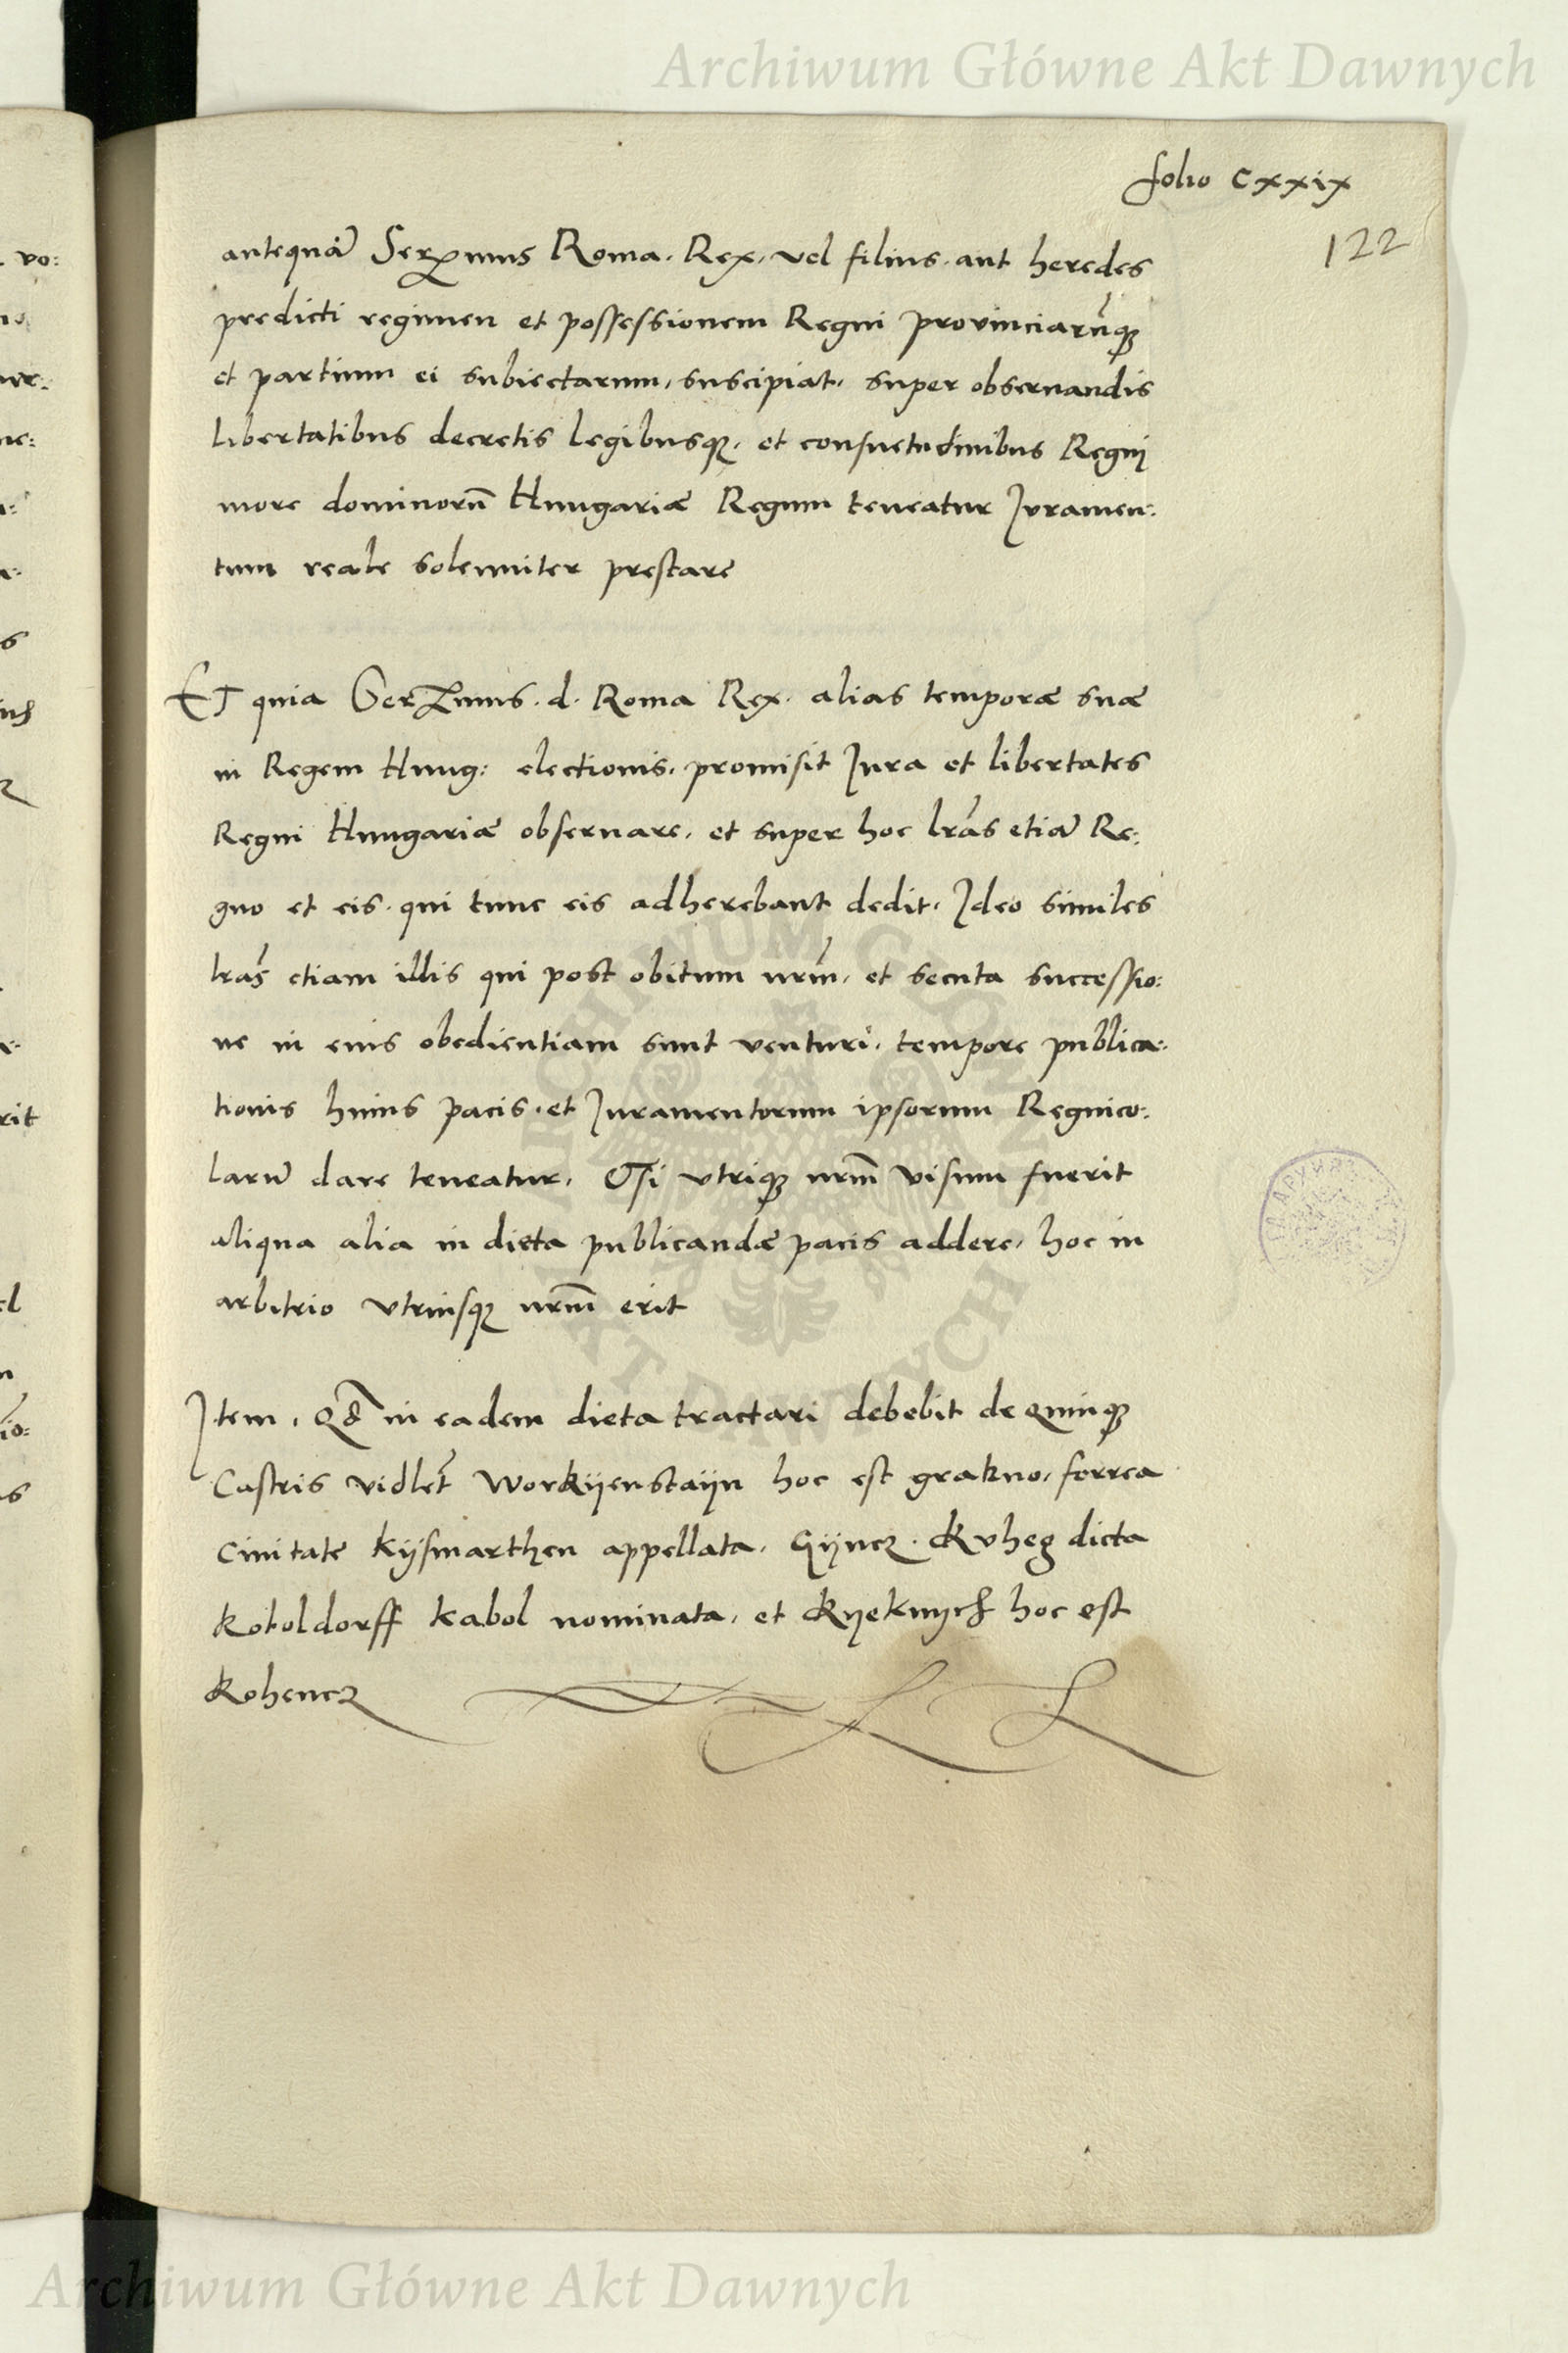 Archiwum Główne Akt Dawnych
folio cxxix
122
antequā Serenimus Roma. Rex, vel filius, aut heredes
predicti regimen et possessionem Regni provinciarūq;
et partium ei subiectarum, suscipiat, super observandis
libertatibus decretis legibusq;, et consuetudinibus Regnj
more dominorū Hungariæ Regum teneatur Juramen:
tum reale solenniter prestare
ET quia Serenmus. d. Roma Rex. alias temporæ suæ
in Regem Hung: electionis, promisit Jura et libertates
Regni Hungariæ observare, et super hoc lrās etiā Re:
gno et eis, qui tunc eis adherebant dedit, Ideo similes
lrās etiam illis qui post obitum nrm̄, et secuta successio:
ne in eius obedientiam sunt venturi, tempore publica:
tionis huius pacis, et Juramentorum ipsorum Regnico:
larū dare teneatur, Et si utriq; nrm̄ visum fuerit
aliqua alia in dieta publicandæ pacis addere, hoc in
arbitrio utriusq; nrm̄ erit
Item, Qd̄ in eadem dieta tractari debebit de quinq;
Castris vidlet̄ Workijenstaijn hoc est grakno, ferrea
Civitate Kijsmarthen appellata, Gijncz. Kvheg dicta
Koboldorff Kabol nominata, et Kyeknych hoc est
Kohencz
Archiwum Główne Akt Dawnych